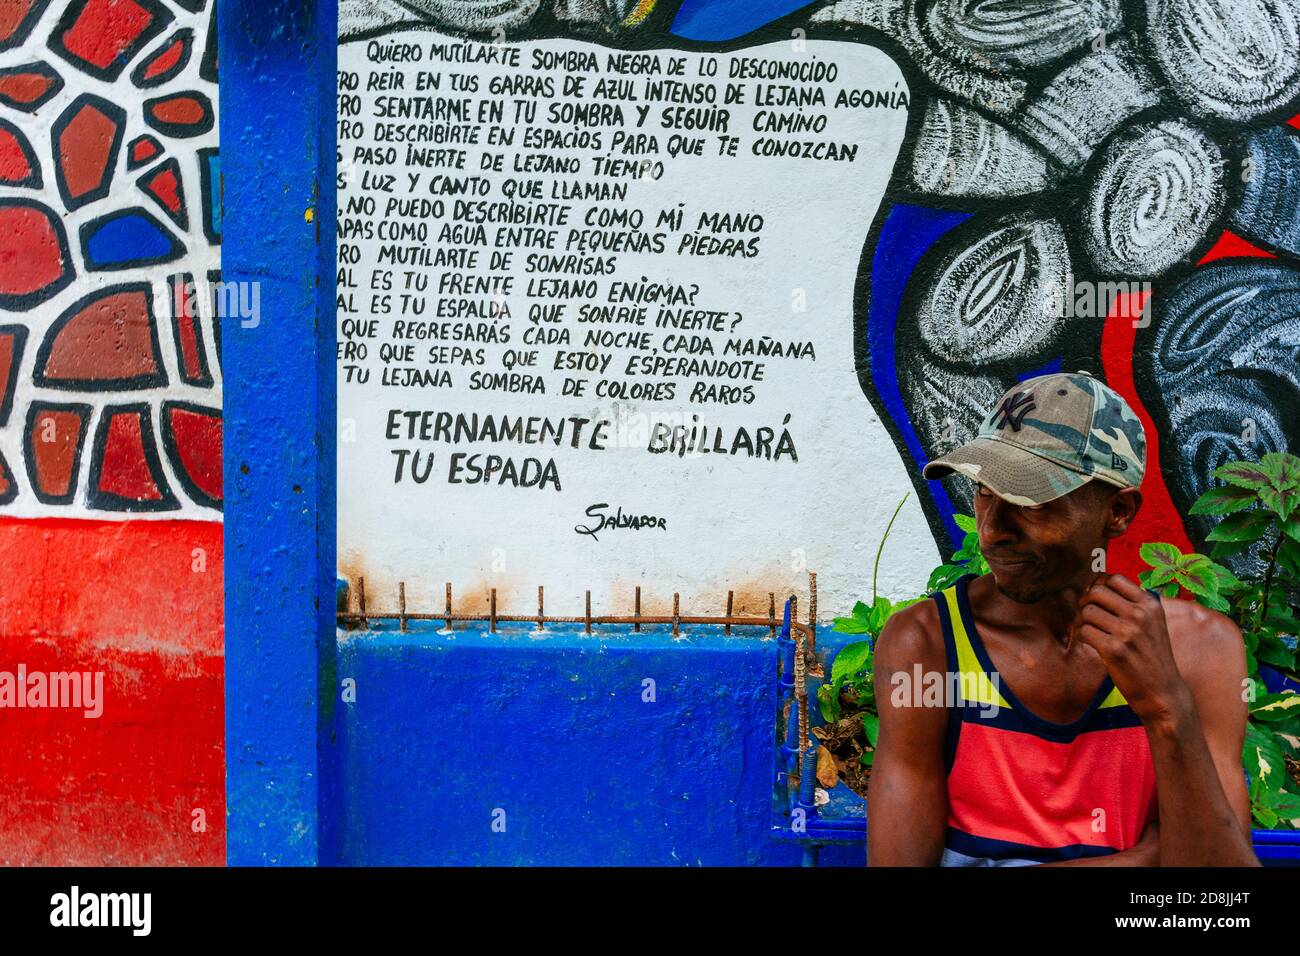 QUIERO MUTILARTE SOMBRA NEGRA DE LO DESCONOCIDO
REIR EN TUS GARRAS DE AZUL INTENSO DE LEJANA AGONÍA
SENTARME EN TU SOMBRA Y SEGUIR CAMINO
DESCRIBIRTE EN ESPACIOS PARA QUE TE CONOZCAN
PASO INERTE DE LEJANO TIEMPO
LUZ Y CANTO QUE LLAMAN
,NO PUEDO DESCRIBIRTE COMO MI MANO
APAS COMO AGUA ENTRE PEQUEÑAS PIEDRAS
MUTILARTE DE SONRISAS
AL ES TU FRENTE LEJANO ENIGMA?
AL ES TU ESPALDA QUE SONRIE INERTE?
QUE REGRESARÁS CADA NOCHE, CADA MAÑANA
ERO QUE SEPAS QUE ESTOY ESPERANDOTE
TU LEJANA SOMBRA DE COLORES RAROS
ETERNAMENTE BRILLARÁ
TU ESPADA
SALVADOR
NY
alamy
Image ID: 2D8JJ4T
www.alamy.com